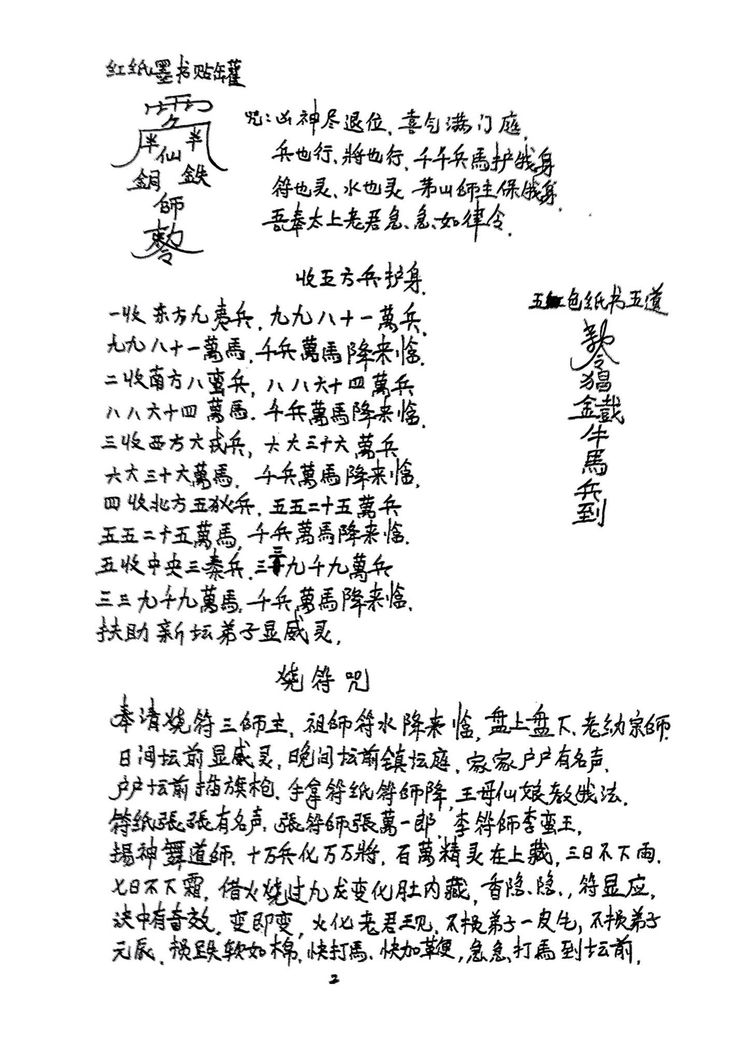 红纸墨书贴罐
雪
半 半
仙
鉄
師
敕令
咒:凶神尽退位、喜气满门庭、
兵也行、將也行、千千兵馬护俄身
符也灵、水也灵 茅山師主保俄身、
吾奉太上老君急、急、如律令、
收五方兵护身、
一收东方九夷兵、九九八十一萬兵、
九九八十一萬馬、千兵萬馬降来临、
二收南方八蛮兵、八八六十四萬兵
八八六十四萬馬、千兵萬馬降来临、
三收西方六戎兵、六六三十六萬兵
六六三十六萬馬、千兵萬馬降来临、
四收北方五狄兵、五五二十五萬兵
五五二十五萬馬、千兵萬馬降来临、
五收中央三秦兵、三三九千九萬兵
三三九千九萬馬、千兵萬馬降来临、
扶助新坛弟子显威灵、
五包纸书五道
敕
令
猖
金戠
牛
馬
兵
到
烧符咒
奉请烧符三師主、祖師符水降来临、盘上盘下、老幼宗師、
日间坛前显威灵、晚间坛前镇坛庭、家家户户有名声、
户户坛前插旗枪、手拿符纸符師降、王母仙娘教俄法、
符纸張張有名声、張符師張萬一郎、李符師李蛮王、
揚神舞道師、十万兵化万万將、百萬精灵在上藏、三日不下雨、
七日不下霜、借火烧过九龙变化肚内藏、香隐、隐、符显应、
诀中有音效、变即变、火化老君王现、不损弟子一皮毛、不损弟子
元辰、损跌软如棉、快打馬、快加鞭,急急、打馬到坛前、
2